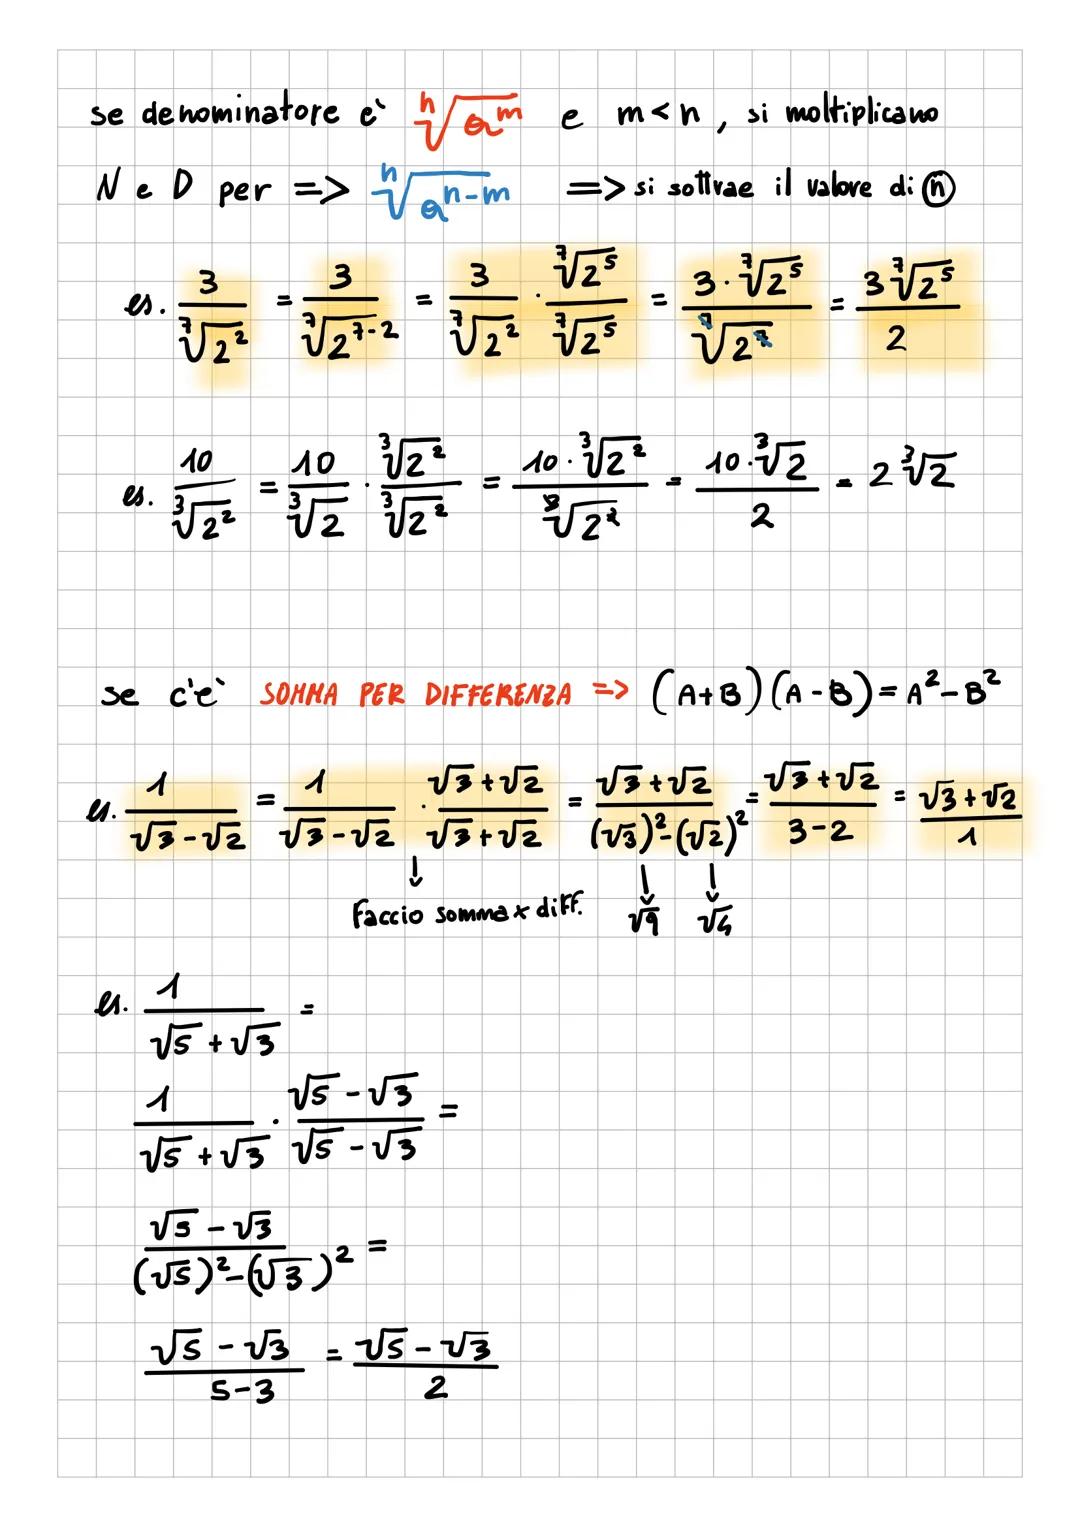 se denominatore e` ⁿ√aᵐ e m<n, si moltiplicano
N e D per => ⁿ√aⁿ⁻ᵐ => si sottrae il valore di ⓝ
es. 3/⁷√2² = 3/⁷√2⁷⁻² = 3/⁷√2² · ⁷√2⁵/⁷√2⁵ = 3·⁷√2⁵/⁷√2⁷ = 3⁷√2⁵/2
es. 10/³√2² = 10/³√2 · ³√2²/³√2² = 10·³√2²/³√2² = 10·³√2/2 = 2³√2
se c'e` SOMMA PER DIFFERENZA => (A+B)(A-B)=A²-B²
es. 1/√3-√2 = 1/√3-√2 · √3+√2/√3+√2 = √3+√2/(√3)²-(√2)² = √3+√2/3-2 = √3+√2/1
↓ ↓ ↓
Faccio somma x diff. √9 √4
es. 1/√5+√3 =
1/√5+√3 · √5-√3/√5-√3 =
√5-√3/(√5)²-(√3)² =
√5-√3/5-3 = √5-√3/2